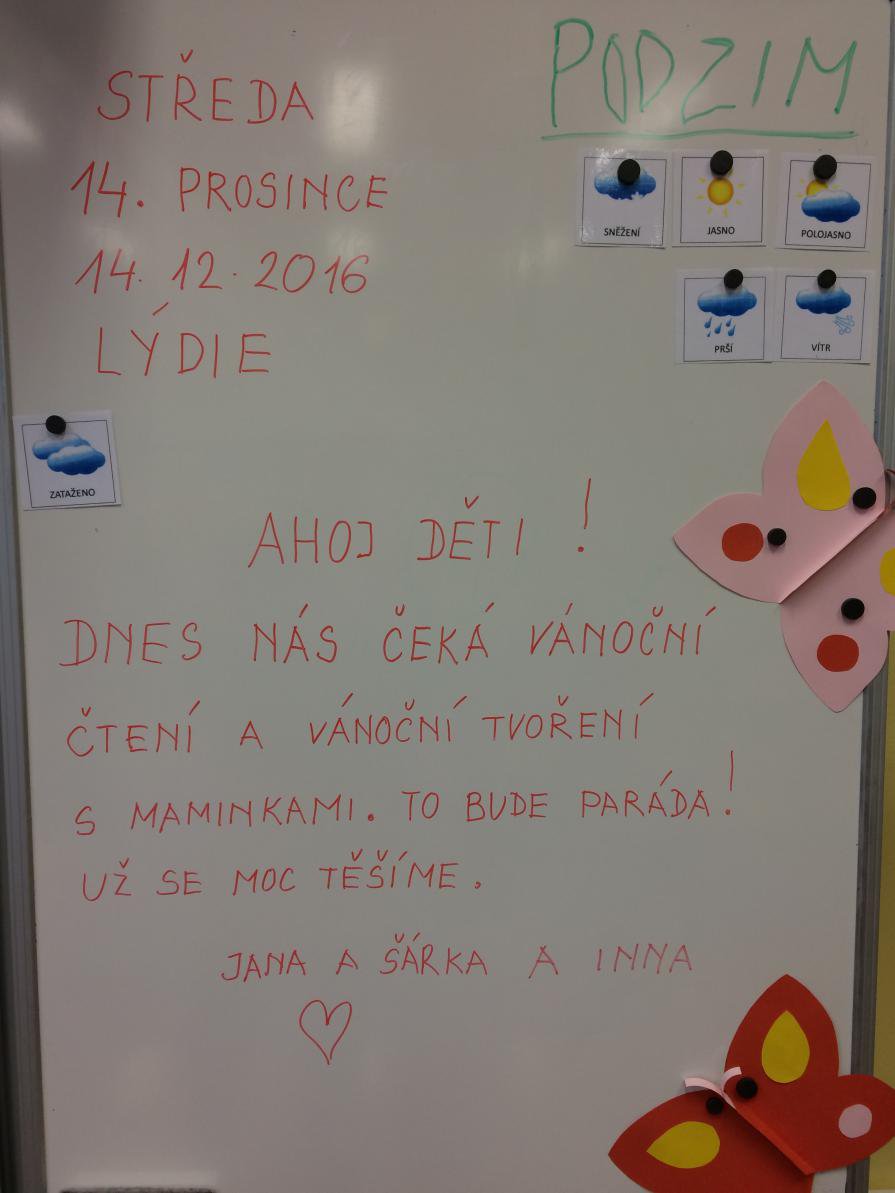 PODZIM
STŘEDA
14. PROSINCE
14. 12. 2016
LÝDIE
SNĚŽENÍ
JASNO
POLOJASNO
PRŠÍ
VÍTR
ZATAŽENO
AHOJ DĚTI !
DNES NÁS ČEKÁ VÁNOČNÍ
ČTENÍ A VÁNOČNÍ TVOŘENÍ
S MAMINKAMI. TO BUDE PARÁDA!
UŽ SE MOC TĚŠÍME.
JANA A ŠÁRKA A INNA